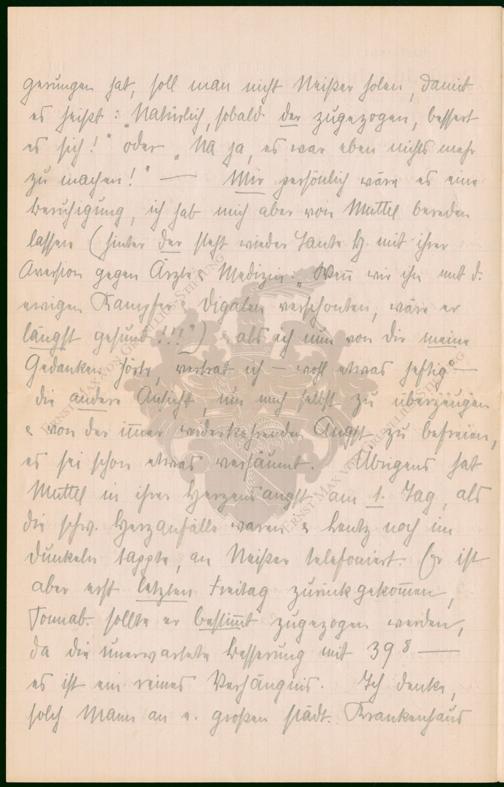 gerungen hat, soll man nicht Neißer holen, damit
es heißt: "Natürlich, sobald der zugezogen, bessert
es sich!" oder "Na ja, es war eben nichts mehr
zu machen!" — Mir persönlich wäre es eine
Beruhigung, ich hab mich aber von Muttel bereden
lassen (hinter der steht wieder Tante H. mit ihrer
Aversion gegen Ärzte u. Medizin: "Wenn wir ihn mit d.
ewigen Kampfer u. Digalen verschonten, wäre er
längst gesund"!!!") als ich nun von Dir meine
Gedanken hörte, vertrat ich — wohl etwas heftig —
die andere Ansicht, um mich selbst zu überzeugen
u. von der immer wiederkehrenden Angst zu befreien,
es sei schon etwas versäumt. Übrigens hat
Muttel in ihrer Herzensangst am 1. Tag, als
die schw. Herzanfälle waren u. Lentz noch im
Dunkeln tappte, an Neißer telefoniert. Er ist
aber erst letzten Freitag zurückgekommen,
Sonnab. sollte er bestimmt zugezogen werden,
da die unerwartete Besserung mit 39⁸ —
es ist ein reines Verhängnis. Ich denke,
solch Mann an e. großen städt. Krankenhaus
ERNST MAX VON GRUNELIUS-STIFTUNG
ERNST MAX VON GRUNELIUS-STIFTUNG